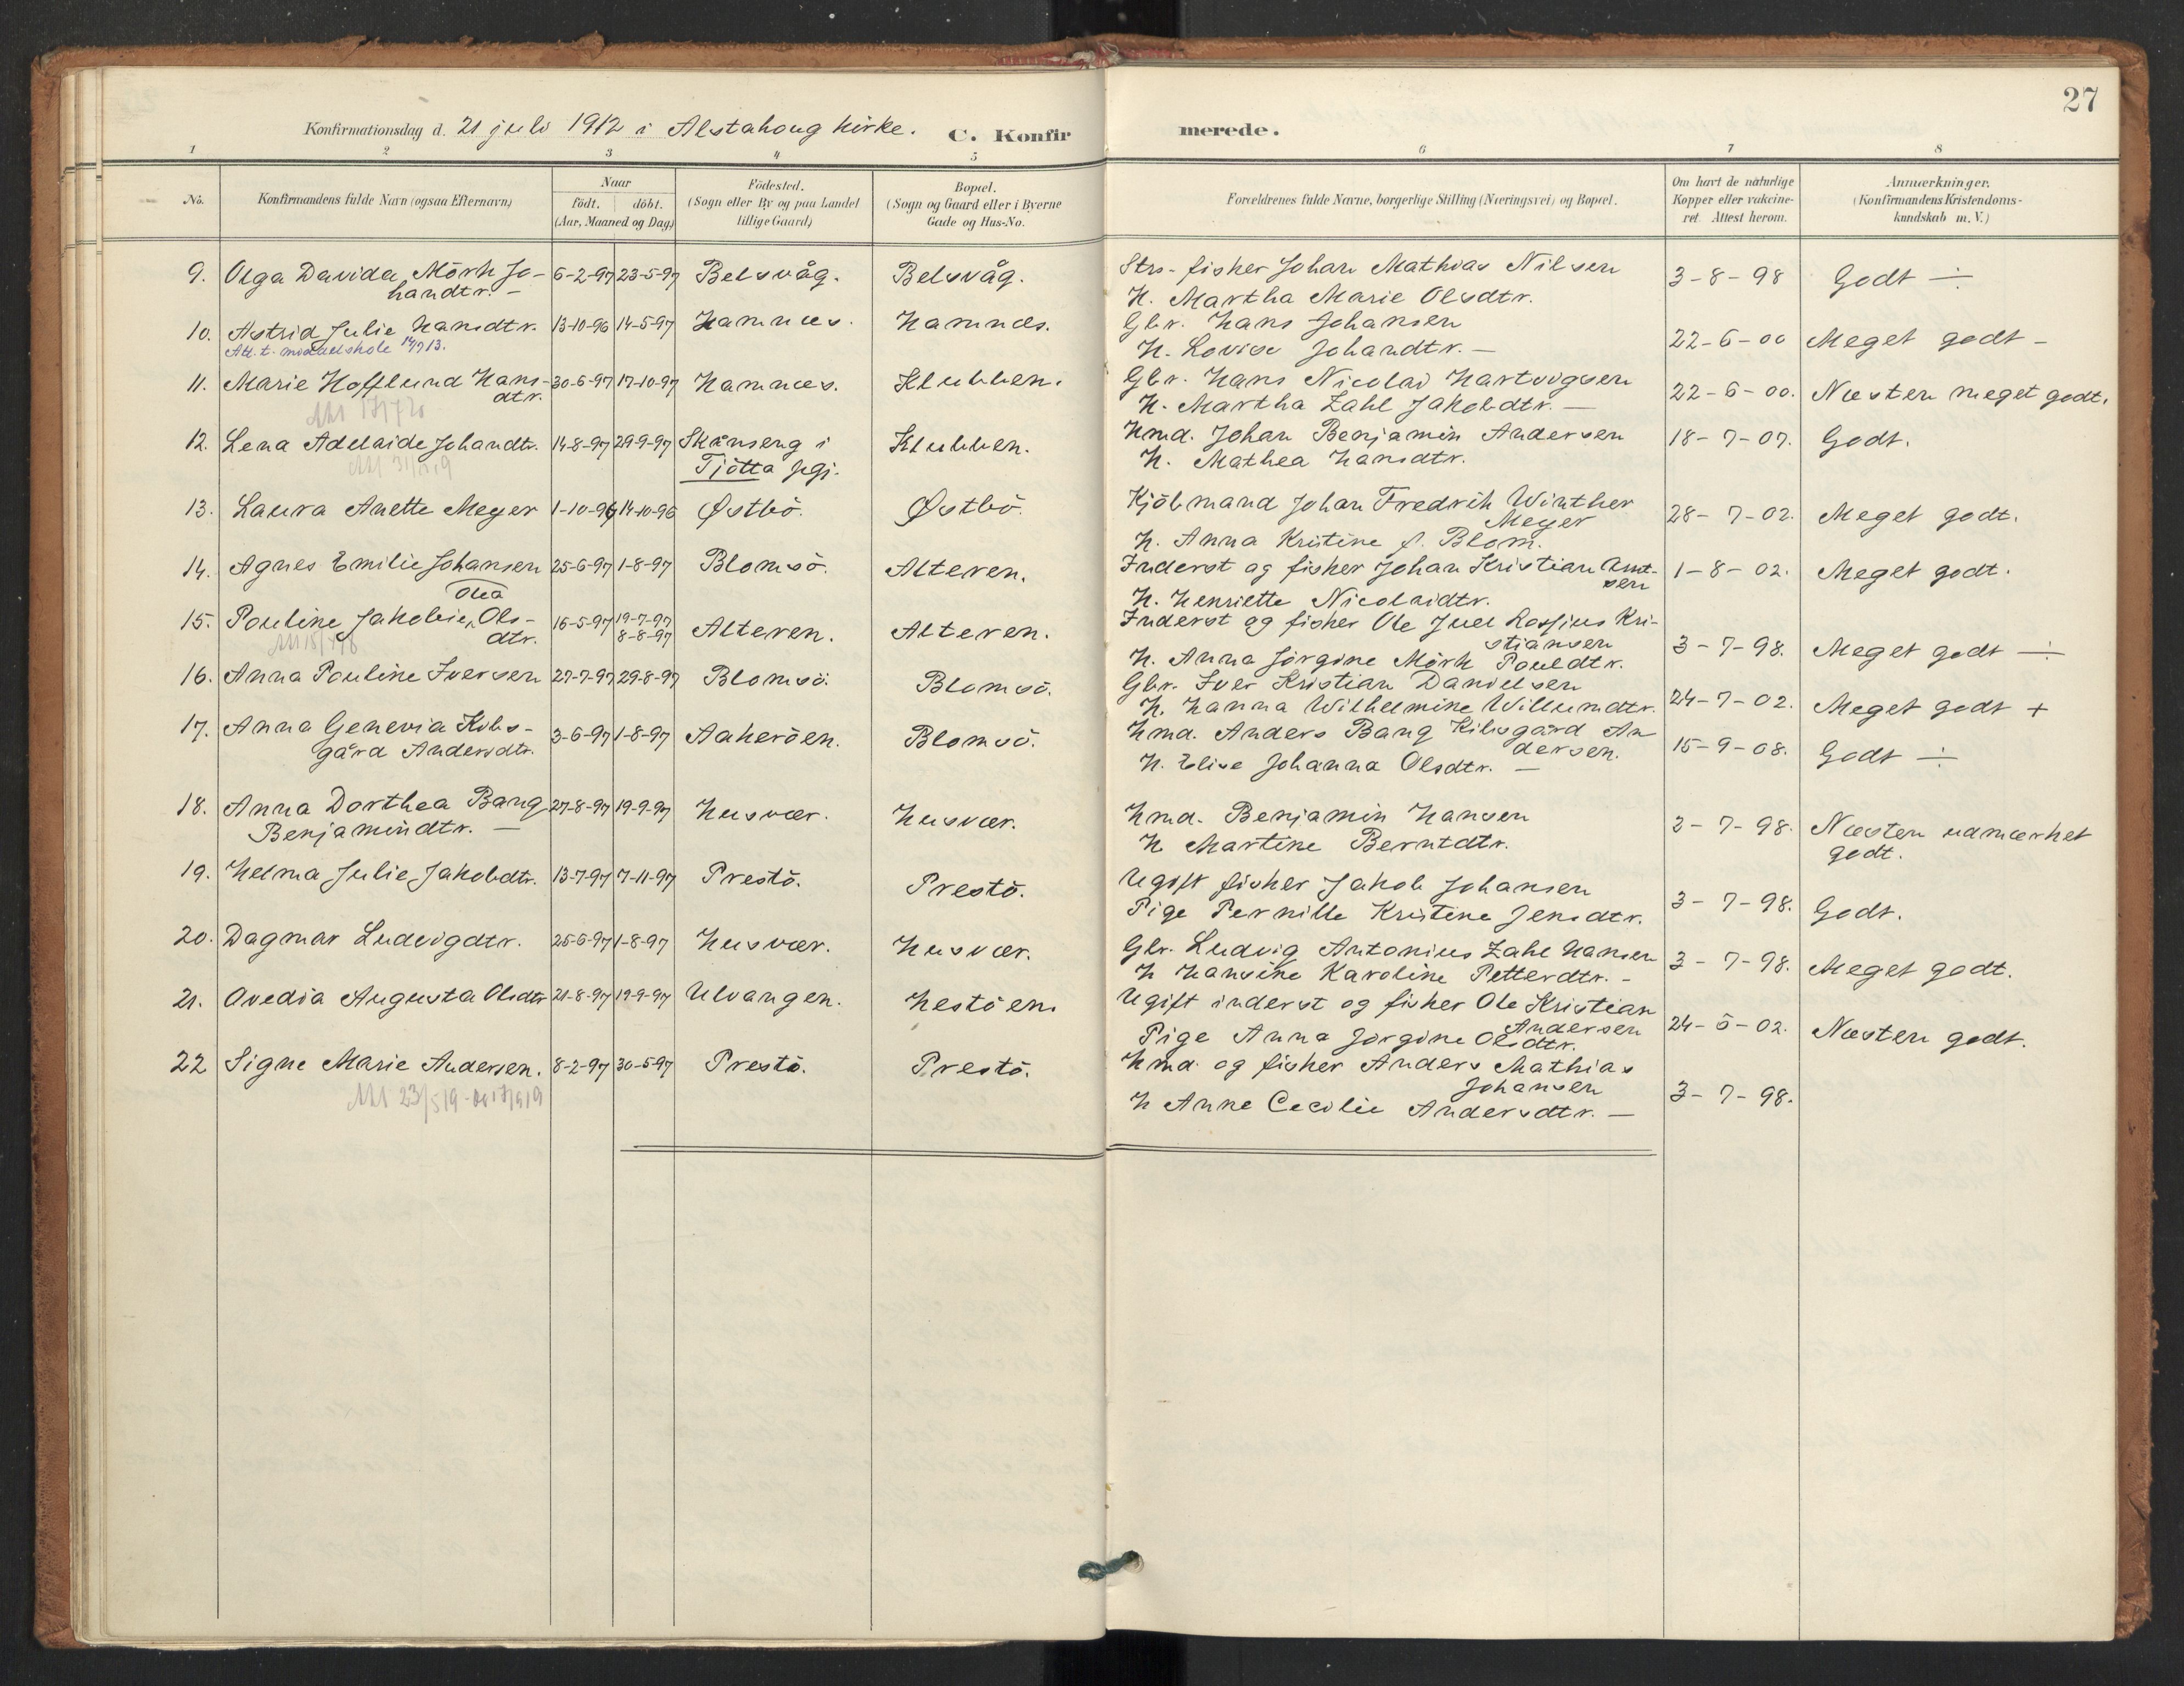 27
Konfirmationsdag d. 21 juli 1912 i Alstahoug kirke. C. Konfirmerede.
1 2 3 4 5 6 7 8
No.
Konfirmandens fulde Navn (ogsaa Efternavn)
Naar
födt. döbt.
(Aar, Maaned og Dag)
Födested.
(Sogn eller By og paa Landet
tillige Gaard)
Bopæl.
(Sogn og Gaard eller i Byerne
Gade og Hus-No.
Forældrenes fulde Navne, borgerlige Stilling (Næringsvei) og Bopæl.
Om havt de naturlige
Kopper eller vakcine-
ret. Attest herom.
Anmærkninger.
(Konfirmandens Kristendoms-
kundskab m. V.)
9. Olga Davida Mörk Jo- 6-2-97 23-5-97 Belsvåg. Belsvåg. Strs-fisker Johan Mathias Nilsen 3-8-98 Godt ÷
handtr. - H. Martha Marie Olsdtr.
10. Astrid Julie Hansdtr. 13-10-96 14-5-97 Hamnes. Hamnes. Gbr. Hans Johansen 22-6-00 Meget godt -
Att. t. middelskole 14/7 13. H. Lovise Johandtr. -
11. Marie Hofflund Hans- 30-6-97 17-10-97 Hamnes. Klubben. Gbr. Hans Nicolai Hartvigsen 22-6-00. Næsten meget godt.
dtr. H. Martha Zahl Jakobdtr. -
12. Lena Adelaide Johandtr. 14-8-97 29-9-97 Skånseng i Klubben. Hmd. Johan Benjamin Andersen 18-7-07. Godt.
Tjötta pgj. H. Mathea Hansdtr.
13. Laura Anette Meyer 1-10-96 14-10-96 Østbö. Østbö. Kjöbmand Johan Fredrik Winther 28-7-02. Meget godt.
Meyer
H. Anna Kristine f. Blom.
14. Agnes Emilie Johansen 25-6-97 1-8-97 Blomsö. Alteren. Inderst og fisker Johan Kristian Amt- 1-8-02. Meget godt.
sen
H. Henriette Nicolaidtr.
Olea
15. Pouline Jakobie Ols- 16-5-97 19-7-97 Alteren. Alteren. Inderst og fisker Ole Juel Rasjius Kri- 3-7-98. Meget godt ÷
dtr. 8-8-97 stiansen
H. Anna Jörgine Mörk Pouldtr.
16. Anna Pouline Iversen 27-7-97 29-8-97 Blomsö. Blomsö. Gbr. Iver Kristian Danielsen 24-7-02. Meget godt +
H. Hanna Wilhelmine Willumdtr.
17. Anna Genevia Kibs- 3-6-97 1-8-97 Aakeröen. Blomsö. Hmd. Anders Bang Kibsgård An 15-9-08. Godt ÷
gård Andersdtr. dersen.
H. Elise Johanna Olsdtr. -
18. Anna Dorthea Bang 27-8-97 19-9-97 Husvær. Husvær. Hmd. Benjamin Hansen 2-7-98. Næsten udmærket
Benjamindtr. - H Martine Berntdtr. godt.
19. Helma Julie Jakobdtr. 13-7-97 7-11-97 Prestö. Prestö. Ugift fisker Jakob Johansen 3-7-98. Godt.
Pige Pernille Kristine Jensdtr.
20. Dagmar Ludvigdtr. 25-6-97 1-8-97 Husvær. Husvær. Gbr. Ludvig Antonius Zahl Hansen 3-7-98. Meget godt.
H Hansine Karoline Petterdtr. -
21. Ovedia Augusta Olsdtr 21-8-97 19-9-97 Ulvangen. Hestöen. Ugift inderst og fisker Ole Kristian 24-5-02. Næsten godt.
Andersen
Pige Anna Jorgine Olsdtr.
22 Signe Marie Andersen. 8-2-97 30-5-97 Prestö. Prestö. Hmd. og fisker Anders Mathias 3-7-98.
Johansen
H Anne Cecilie Andersdtr. -